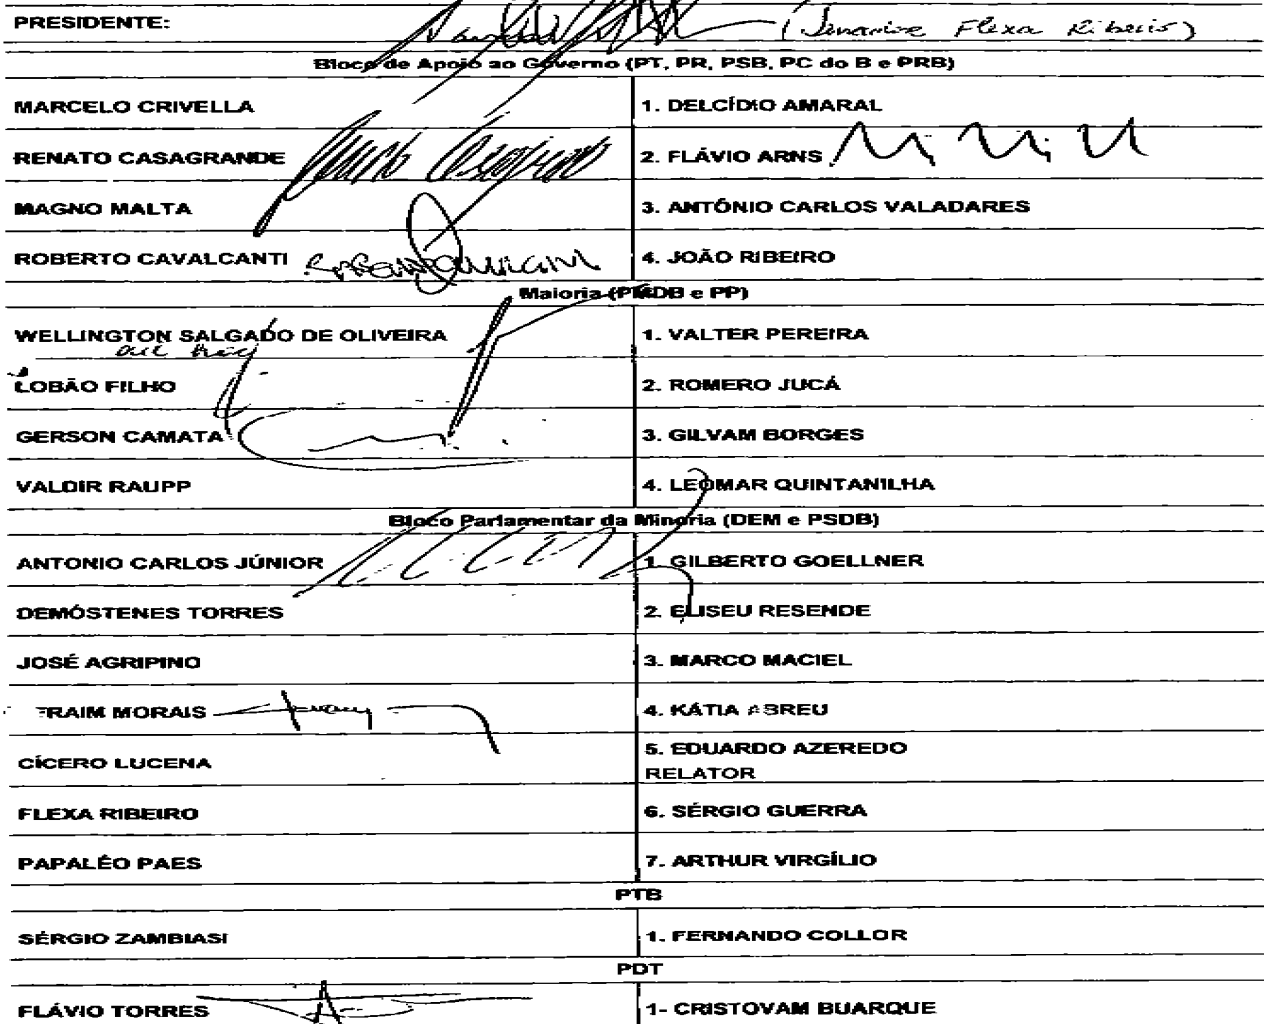 PRESIDENTE: (Senador Flexa Ribeiro)
Bloco de Apoio ao Governo (PT, PR, PSB, PC do B e PRB)
MARCELO CRIVELLA 1. DELCÍDIO AMARAL
RENATO CASAGRANDE 2. FLÁVIO ARNS
MAGNO MALTA 3. ANTÔNIO CARLOS VALADARES
ROBERTO CAVALCANTI 4. JOÃO RIBEIRO
Maioria (PMDB e PP)
WELLINGTON SALGADO DE OLIVEIRA 1. VALTER PEREIRA
LOBÃO FILHO 2. ROMERO JUCÁ
GERSON CAMATA 3. GILVAM BORGES
VALDIR RAUPP 4. LEOMAR QUINTANILHA
Bloco Parlamentar da Minoria (DEM e PSDB)
ANTONIO CARLOS JÚNIOR 1. GILBERTO GOELLNER
DEMÓSTENES TORRES 2. ELISEU RESENDE
JOSÉ AGRIPINO 3. MARCO MACIEL
FRAIM MORAIS 4. KÁTIA ABREU
CÍCERO LUCENA 5. EDUARDO AZEREDO
RELATOR
FLEXA RIBEIRO 6. SÉRGIO GUERRA
PAPALÉO PAES 7. ARTHUR VIRGÍLIO
PTB
SÉRGIO ZAMBIASI 1. FERNANDO COLLOR
PDT
FLÁVIO TORRES 1- CRISTOVAM BUARQUE